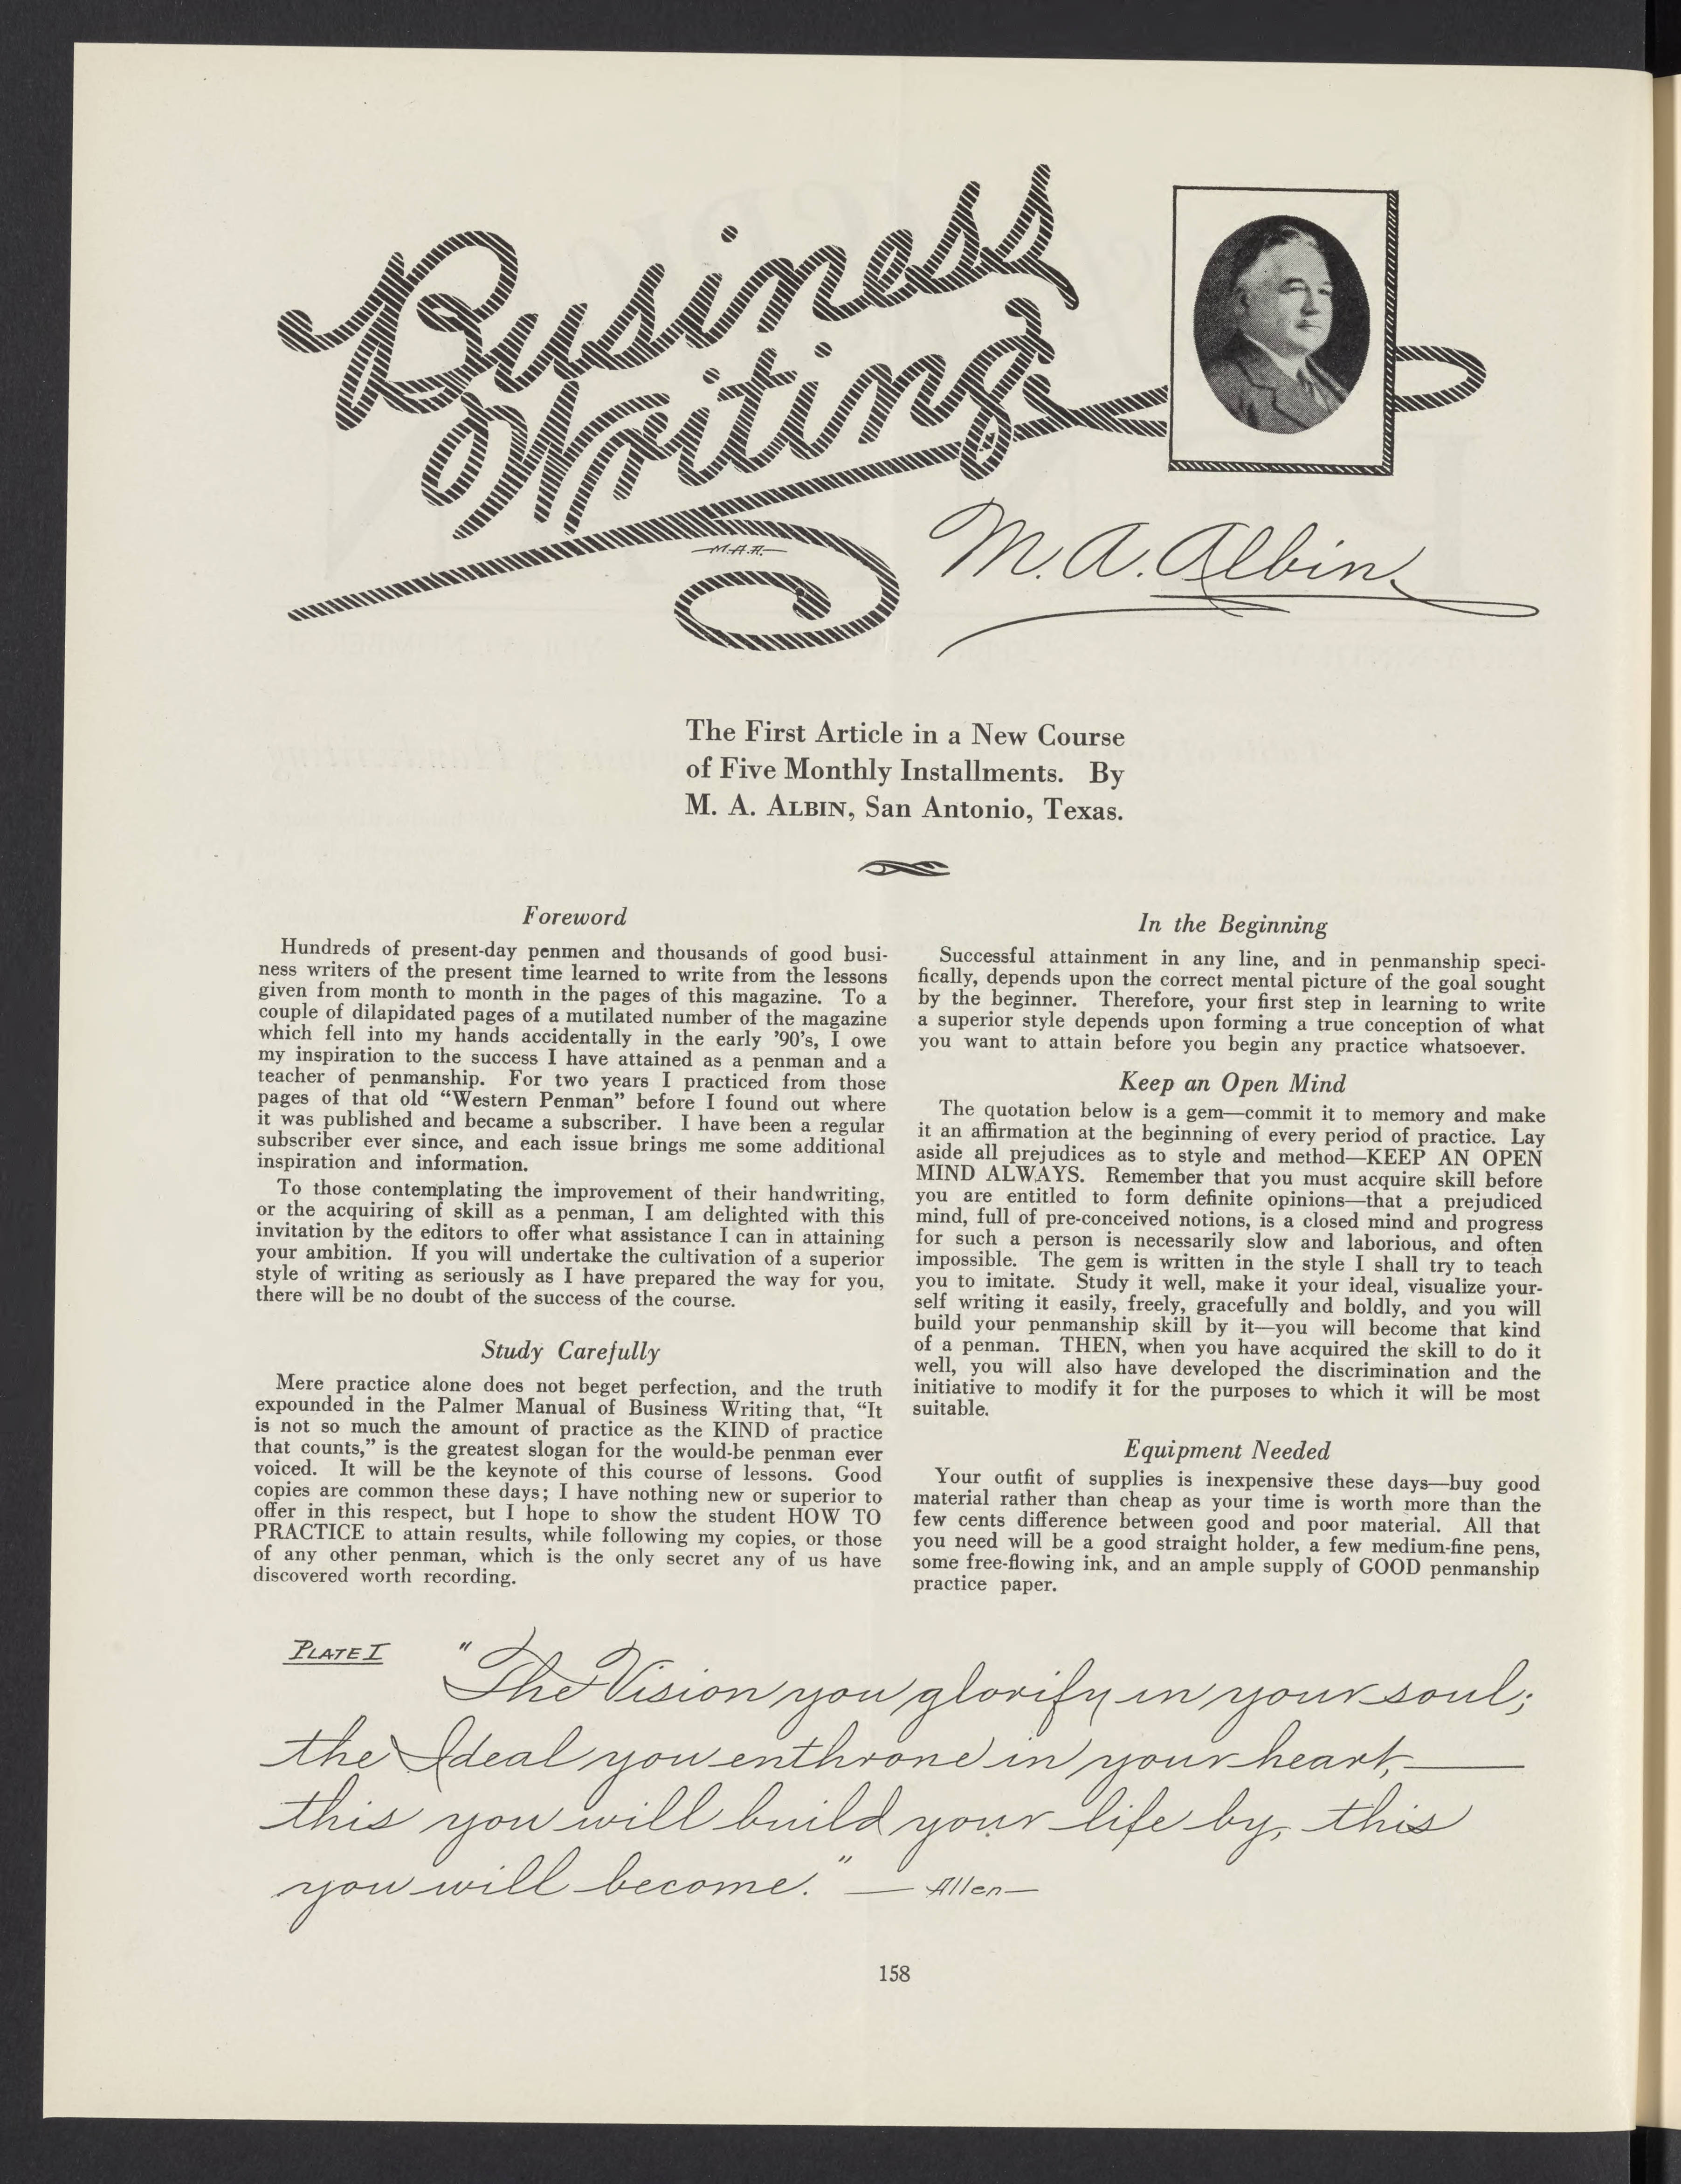 Business
Writing
M.A.A.
M. A. Albin.
The First Article in a New Course
of Five Monthly Installments. By
M. A. ALBIN, San Antonio, Texas.
Foreword
Hundreds of present-day penmen and thousands of good busi-
ness writers of the present time learned to write from the lessons
given from month to month in the pages of this magazine. To a
couple of dilapidated pages of a mutilated number of the magazine
which fell into my hands accidentally in the early '90's, I owe
my inspiration to the success I have attained as a penman and a
teacher of penmanship. For two years I practiced from those
pages of that old "Western Penman" before I found out where
it was published and became a subscriber. I have been a regular
subscriber ever since, and each issue brings me some additional
inspiration and information.
To those contemplating the improvement of their handwriting,
or the acquiring of skill as a penman, I am delighted with this
invitation by the editors to offer what assistance I can in attaining
your ambition. If you will undertake the cultivation of a superior
style of writing as seriously as I have prepared the way for you,
there will be no doubt of the success of the course.
Study Carefully
Mere practice alone does not beget perfection, and the truth
expounded in the Palmer Manual of Business Writing that, "It
is not so much the amount of practice as the KIND of practice
that counts," is the greatest slogan for the would-be penman ever
voiced. It will be the keynote of this course of lessons. Good
copies are common these days; I have nothing new or superior to
offer in this respect, but I hope to show the student HOW TO
PRACTICE to attain results, while following my copies, or those
of any other penman, which is the only secret any of us have
discovered worth recording.
In the Beginning
Successful attainment in any line, and in penmanship speci-
fically, depends upon the correct mental picture of the goal sought
by the beginner. Therefore, your first step in learning to write
a superior style depends upon forming a true conception of what
you want to attain before you begin any practice whatsoever.
Keep an Open Mind
The quotation below is a gem—commit it to memory and make
it an affirmation at the beginning of every period of practice. Lay
aside all prejudices as to style and method—KEEP AN OPEN
MIND ALWAYS. Remember that you must acquire skill before
you are entitled to form definite opinions—that a prejudiced
mind, full of pre-conceived notions, is a closed mind and progress
for such a person is necessarily slow and laborious, and often
impossible. The gem is written in the style I shall try to teach
you to imitate. Study it well, make it your ideal, visualize your-
self writing it easily, freely, gracefully and boldly, and you will
build your penmanship skill by it—you will become that kind
of a penman. THEN, when you have acquired the skill to do it
well, you will also have developed the discrimination and the
initiative to modify it for the purposes to which it will be most
suitable.
Equipment Needed
Your outfit of supplies is inexpensive these days—buy good
material rather than cheap as your time is worth more than the
few cents difference between good and poor material. All that
you need will be a good straight holder, a few medium-fine pens,
some free-flowing ink, and an ample supply of GOOD penmanship
practice paper.
PLATE I
"The Vision you glorify in your soul;
the Ideal you enthrone in your heart,—
this you will build your life by, this
you will become." — Allen—
158